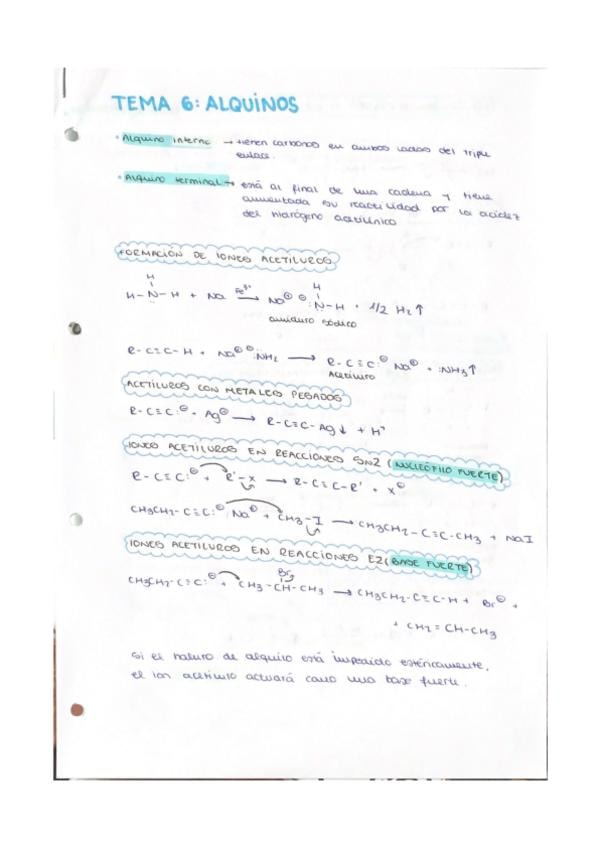 TEMA 6: ALQUINOS
· Alquino interno → tienen carbonos en ambos lados del triple
enlace.
· Alquino terminal → está al final de una cadena y tiene
aumentada su reactividad por la acidez
del hidrógeno acetilínico
FORMACIÓN DE IONES ACETILUROS
H H
H-N̈-H + Na Fe³⁺⟶ Na⊕ ⊖:N-H + 1/2 H₂↑
amiduro sódico
R-C≡C-H + Na⊕ ⊖:NH₂ ⟶ R-C≡C:⊖ Na⊕ + :NH₃↑
Acetiluro
ACETILUROS CON METALES PESADOS
R-C≡C:⊖ + Ag⊕ ⟶ R-C≡C-Ag↓ + H⁺
IONES ACETILUROS EN REACCIONES SN2 (NUCLEÓFILO FUERTE)
R-C≡C:⊖ + R'-X ⟶ R-C≡C-R' + X⊖
CH3CH2-C≡C:⊖ Na⊕ + CH3-I ⟶ CH3CH2-C≡C-CH3 + NaI
IONES ACETILUROS EN REACCIONES E2 (BASE FUERTE)
Br
CH3CH2-C≡C:⊖ + CH3-CH-CH3 ⟶ CH3CH2-C≡C-H + Br⊖ +
+ CH2=CH-CH3
Si el haluro de alquilo está impedido estéricamente,
el ion acetiluro actuará como una base fuerte.